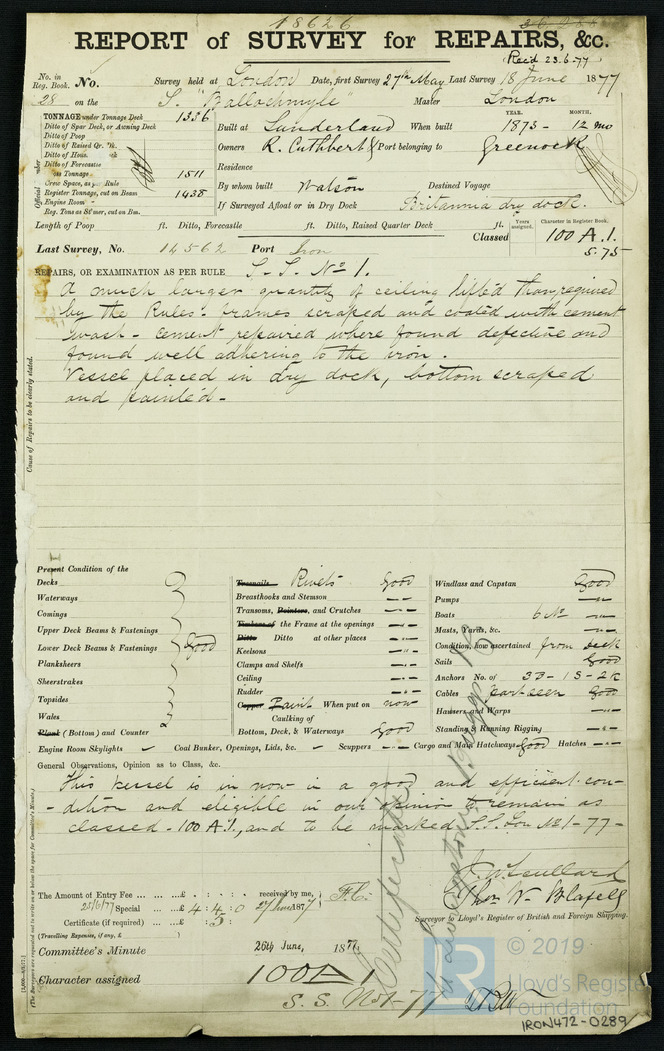 18626
REPORT of SURVEY for REPAIRS, &c.
Recd 23.6.77
No. in Reg. Book. No. Survey held at London Date, first Survey 27th May Last Survey 18 June 1877
28 on the S. "Ballochmyle" Master London
TONNAGE under Tonnage Deck 1336
Ditto of Spar Deck, or Awning Deck
Ditto of Poop
Ditto of Raised Qr.
Ditto of Hous
Ditto of Forecastle
Tonnage 1511
Crew Space, as Rule
Register Tonnage, cut on Beam 1438
Engine Room
Reg. Tons as St'mer, cut on Bm.
Official
YEAR. MONTH.
Built at Sunderland When built 1873 - 12 mo
Owners R. Cuthbert Port belonging to Greenock
Residence
By whom built Watson Destined Voyage
If Surveyed Afloat or in Dry Dock Britannia dry dock.
Length of Poop ft. Ditto, Forecastle ft. Ditto, Raised Quarter Deck ft.
Years assigned. Character in Register Book.
Classed 100 A.1.
5.75
Last Survey, No. 14562 Port Iron
REPAIRS, OR EXAMINATION AS PER RULE S.S. No 1.
A much larger quantity of ceiling lifted than required
by the Rules. frames scraped and coated with cement
wash - cement repaired where found defective and
found well adhering to the iron.
Vessel placed in dry dock, bottom scraped
and painted -
Cause of Repairs to be clearly stated.
Present Condition of the
Decks
Waterways
Comings
Upper Deck Beams & Fastenings
Lower Deck Beams & Fastenings Good
Planksheers
Sheerstrakes
Topsides
Wales
Plank (Bottom) and Counter
Treenails Rivets Good
Breasthooks and Stemson -"-
Transoms, Pointers, and Crutches -"-
Timbers of the Frame at the openings -"-
Ditto Ditto at other places -"-
Keelsons -"-
Clamps and Shelfs -"-
Ceiling -"-
Rudder -"-
Copper Paint When put on now
Caulking of
Bottom, Deck, & Waterways Good
Windlass and Capstan Good
Pumps -"-
Boats 6 No -"-
Masts, Yards, &c. -"-
Condition, how ascertained from deck
Sails Good
Anchors No. of 3B - 1S - 2K
Cables part seen Good
Hawsers and Warps -"-
Standing & Running Rigging -"-
Engine Room Skylights Coal Bunker, Openings, Lids, &c. Scuppers -"- Cargo and Main Hatchways Good Hatches -"-
General Observations, Opinion as to Class, &c.
This vessel is in now in a good and efficient con-
-dition and eligible in our opinion to remain as
classed - 100 A.1, and to be marked S.S. Lon No 1 - 77 -
The Amount of Entry Fee ... £ : : received by me,
25/6/77 Special ... £ 4:4:0 27 June 1877
Certificate (if required) ... £ : 5 :
(Travelling Expenses, if any, £ )
Surveyor to Lloyd's Register of British and Foreign Shipping.
Committee's Minute 26th June, 187
Character assigned 100 A 1
S.S. No 1 - 77
Certificate
© 2019
Lloyd's Register
Foundation
IRON472-0289